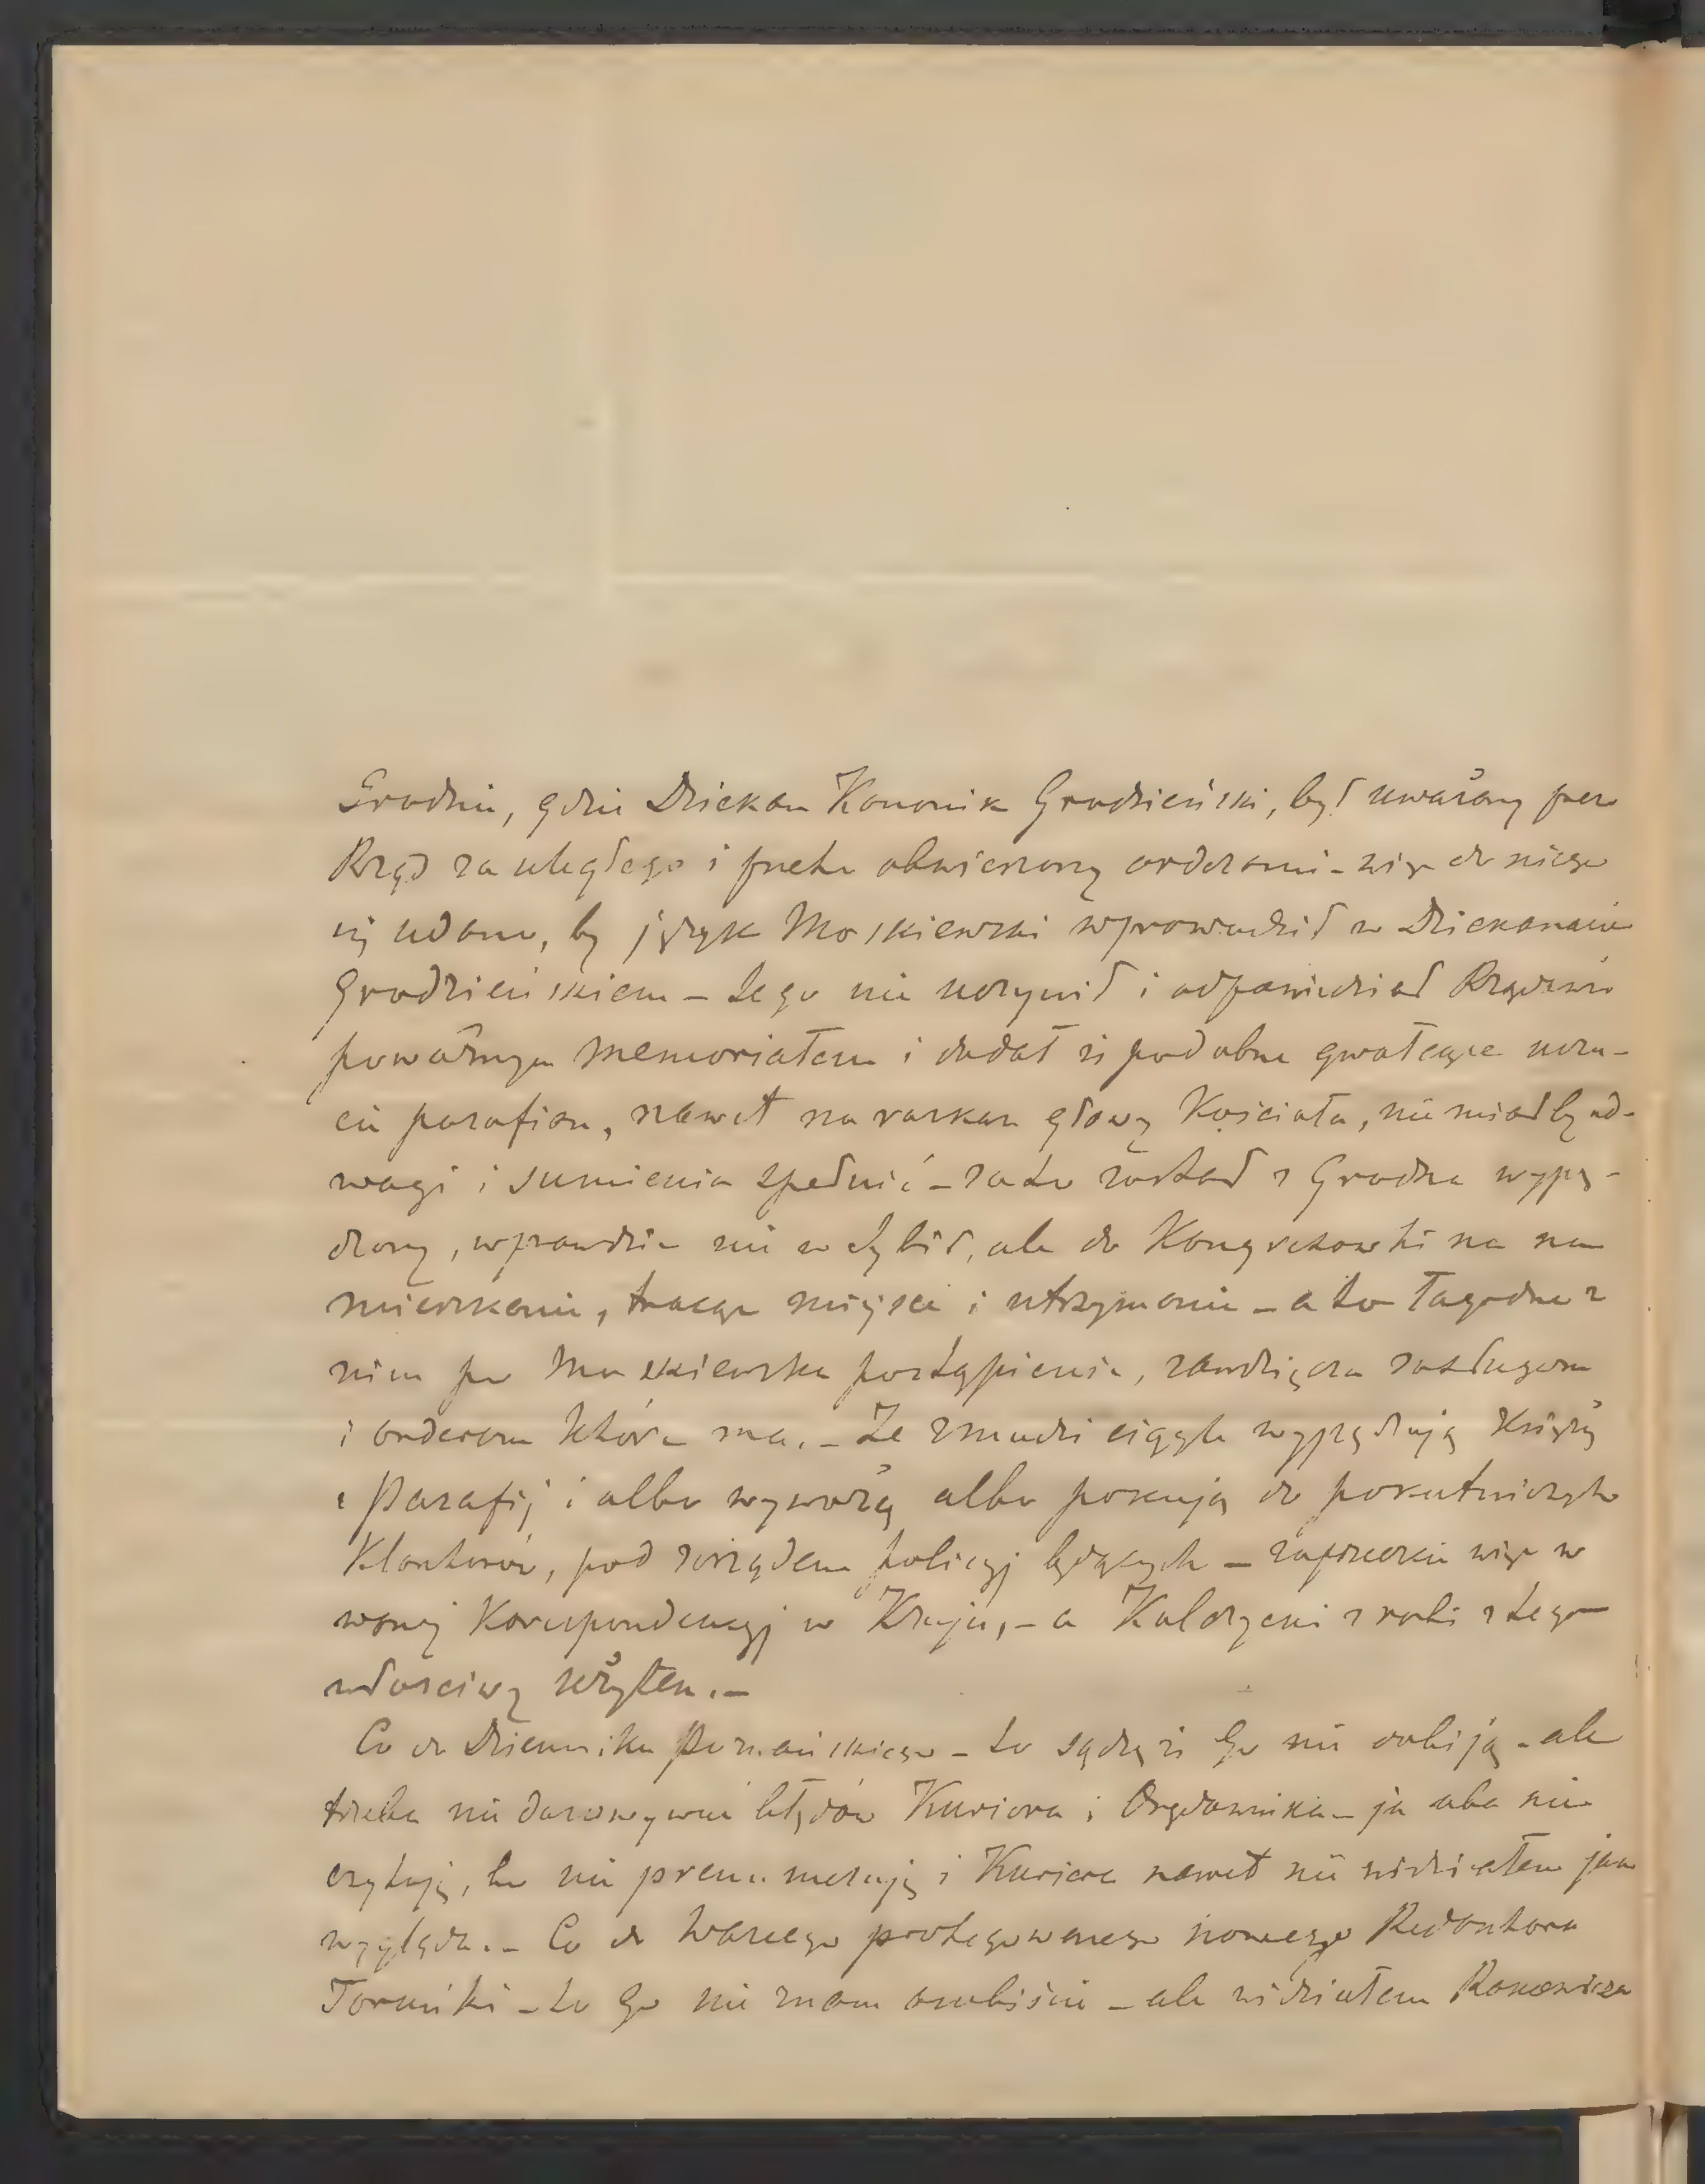 Grodnie, gdzie Dziekan Kanonik Grodzieński, był uważany przez
Rząd za uległego i przeto obwieszony orderami – więc do niego
się udano, by język Moskiewski wprowadził w Dziekanacie
Grodzieńskiem – tego nie uczynił i odpowiedział Rządowi
poważnym memoriałem i dodał iż podobne gwałcące uczu-
cia parafian, nawet na rozkaz głowy Kościoła, nie miałby od-
wagi i sumienia spełnić – za to został z Grodna wypę-
dzony, wprawdzie nie w Sybir, ale do Kongresówki na
mieszkanie, tracąc miejsce i utrzymanie – a to łagodne z
nim po Moskiewsku postąpienie, zawdzięcza zasługom
i orderom które ma. – Ze Żmudzi ciągle wypędzają Księży
z Parafij i albo wywożą albo pakują do pokutniczych
Klasztorów, pod zarządem policyj będących – zaprzeczcie więc w
waszej Korespondencyj w Kraju, – a Kalczeni zrobi z tego
właściwy użytek. –
Co do Dziennika Poznańskiego – to sądzę iż Go nie dobiją – ale
trzeba nie darowywać błędów Kuriera i Orędownika – ja oba nie
czytuję, bo nie prenumeruję i Kuriera nawet nie widziałem jak
wygląda. – Co do Waszego protegowanego nowego Redaktora
Toruński – to Go nie znam osobiście – ale widziałem